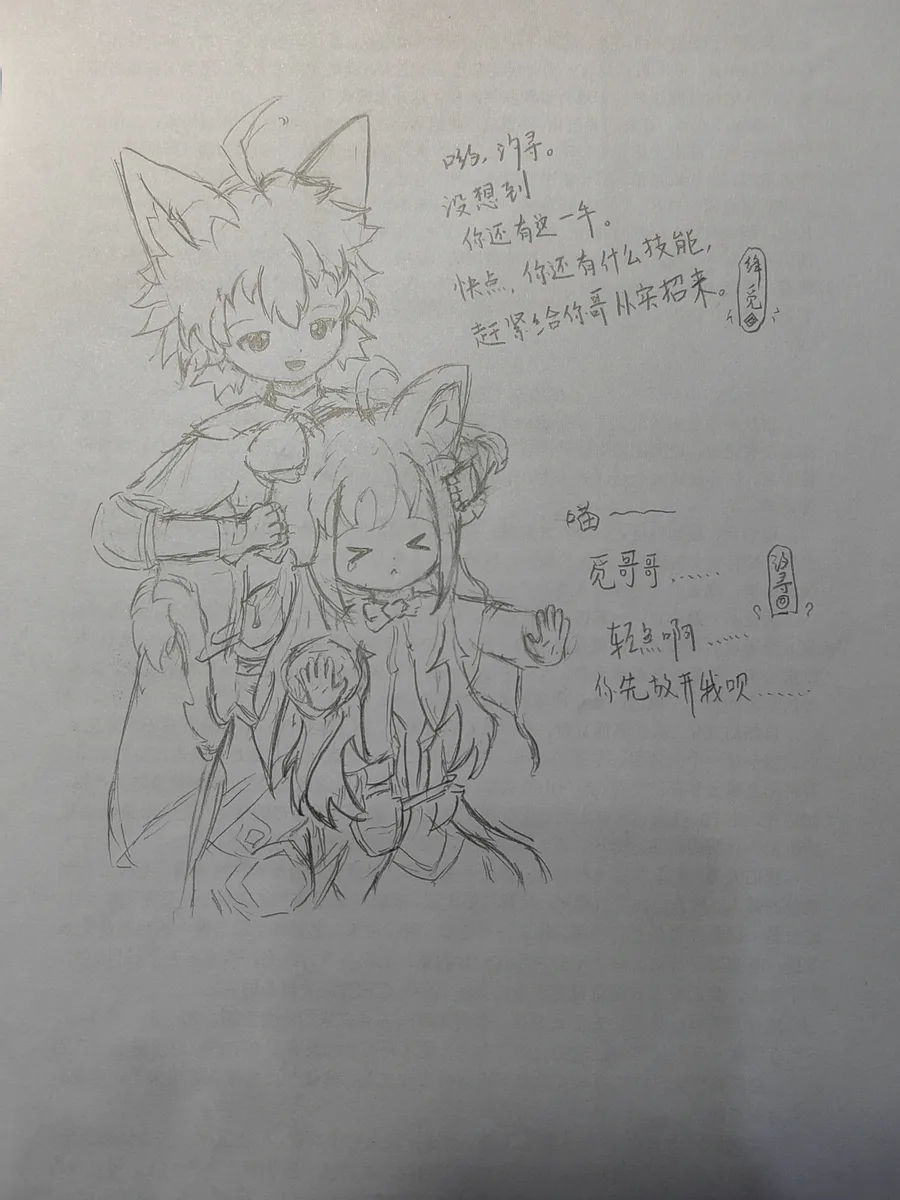 哟，汐寻。
没想到
你还有这一手。
快点，你还有什么技能，
赶紧给你哥从实招来。
绛觅
喵~~
觅哥哥……
轻点啊……
你先放开我呗……
汐寻